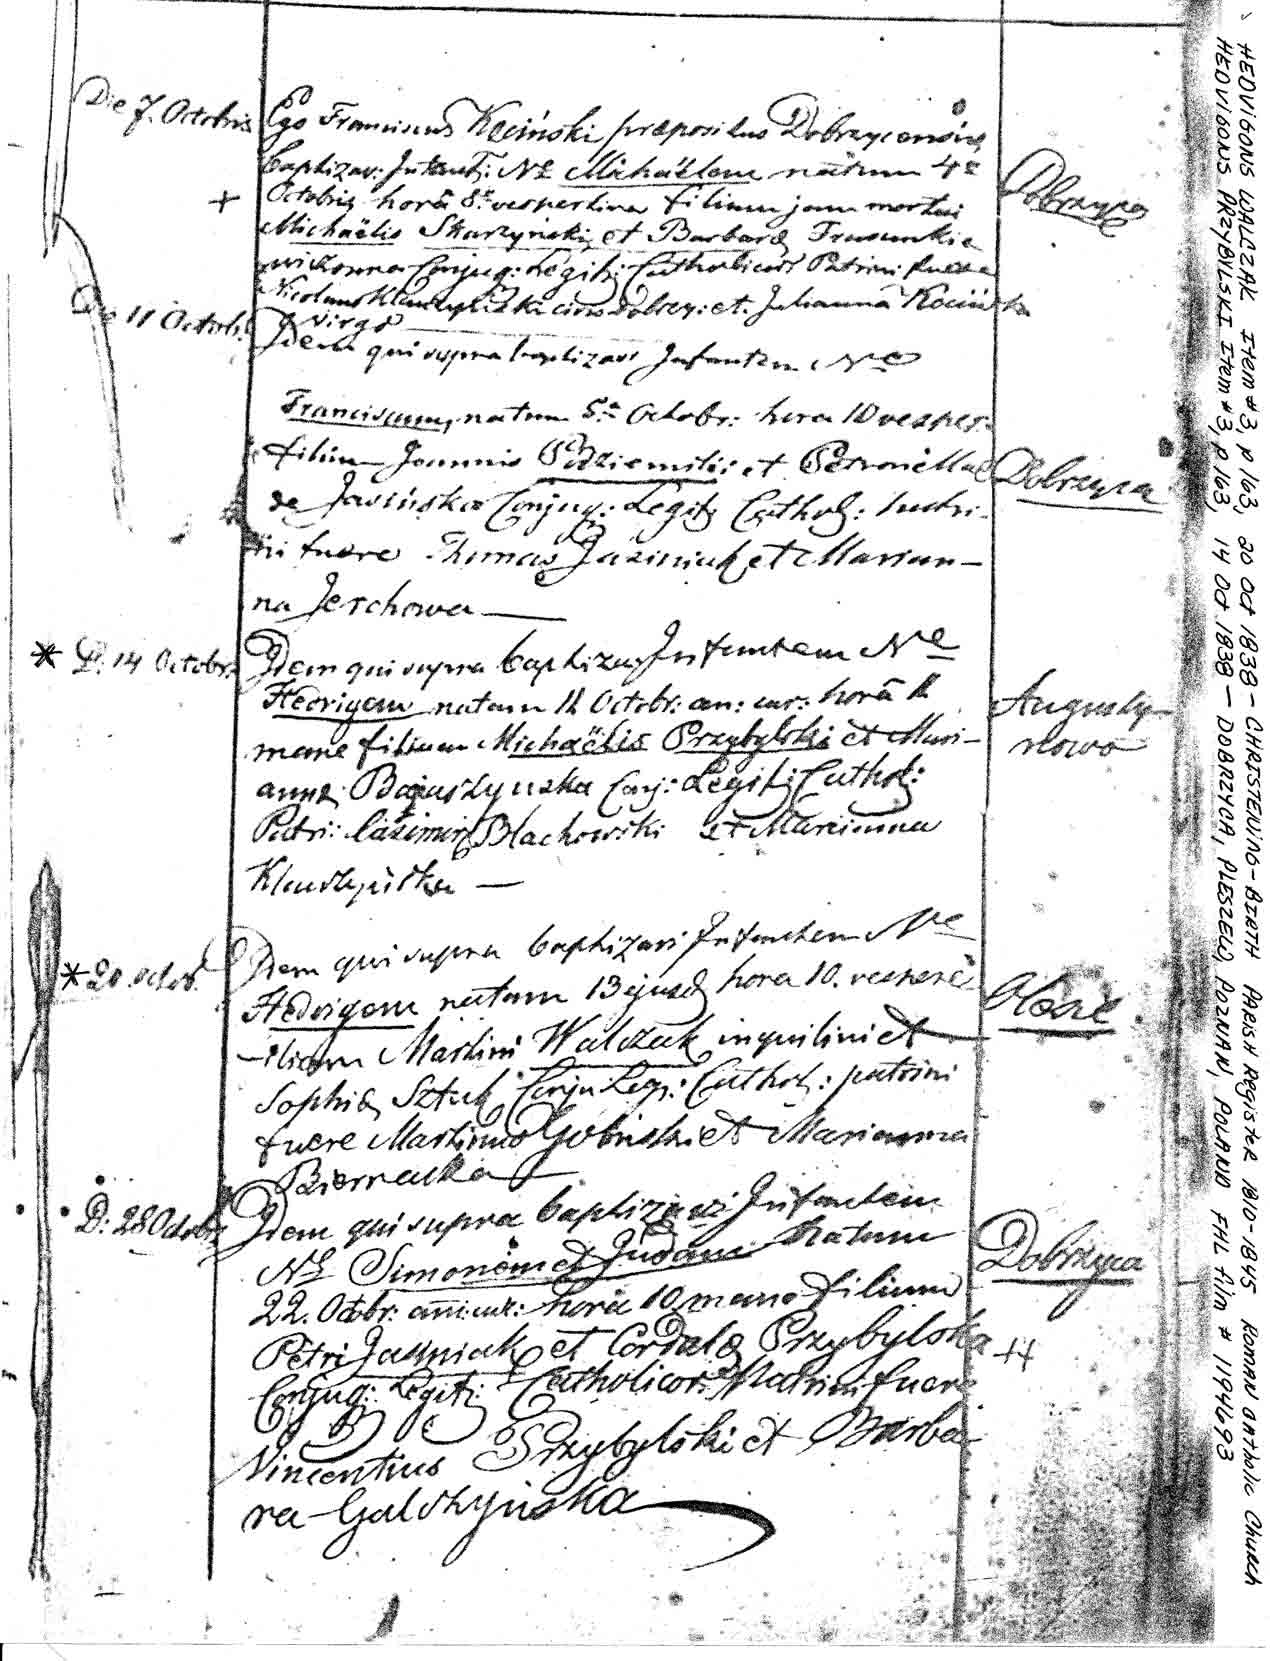 Die 7. Octobris
Ego Franciscus Kociński præpositus Dobrzycensis
baptizav: Infantē: Nē Michaëlem natum 4ª
+
Octobris horâ 8ª vespertina filium jam mortui
Michaëlis Skarzyński et Barbaræ
Conjug: Legit: Catholicor Patrini fuere
Nicolaus civis Dobrzy: et Julianna Kocińska
Virgo
Dobrzyca
Die 11 Octob:
Idem qui supra baptizavi Infantem Nē
Franciscum, natum 5ª Octobr: hora 10 vesper:
filium Joannis et Petronellæ
de Jasińska Conjug: Legit: Cathol: Patri-
ni fuere Thomas Jaziniak et Marian-
na Jerchowa
Dobrzyca
* D: 14 Octobr:
Idem qui supra baptizavi Infantem Nē
Hedvigem natam 11 Octobr: an: cur: horâ 11
mane filiam Michaëlis Przybylski et Mari-
annæ Conj: Legit: Cathol:
Patri: Casimir Blachowski et Marianna
Klauszyńska
Augusty-
nowo
* 20. Octob.
Idem qui supra baptizavi Infantem Nē
Hedvigem natam 13 ejusd hora 10. vespere
filiam Martini Walczak inquilini et
Sophiæ Sztuk Conju: Leg: Cathol: patrini
fuere Martinus et Marianna
Biernacka
D: 28 Octobr:
Idem qui supra baptizavi Infantem
Nē Simonem et Judam natum
22. Octobr: ani: cur: horâ 10 mane filium
Petri Jasiniak et Cordulæ Przybylska
Conjug: Legit: Catholicor: Patrini fuere
Vincentius Przybylski et Barba-
ra Galczyńska
Dobrzyca
++
HEDVIGUS WALCZAK ITEM #3, P 163, 20 OCT 1838 - CHRISTENING-BIRTH PARISH REGISTER 1810-1845 ROMAN CATHOLIC CHURCH
HEDVIGUS PRZYBYLSKI ITEM #3, P 163, 14 OCT 1838 - DOBRZYCA, PLESZEW, POZNAN, POLAND FHL film # 1194693